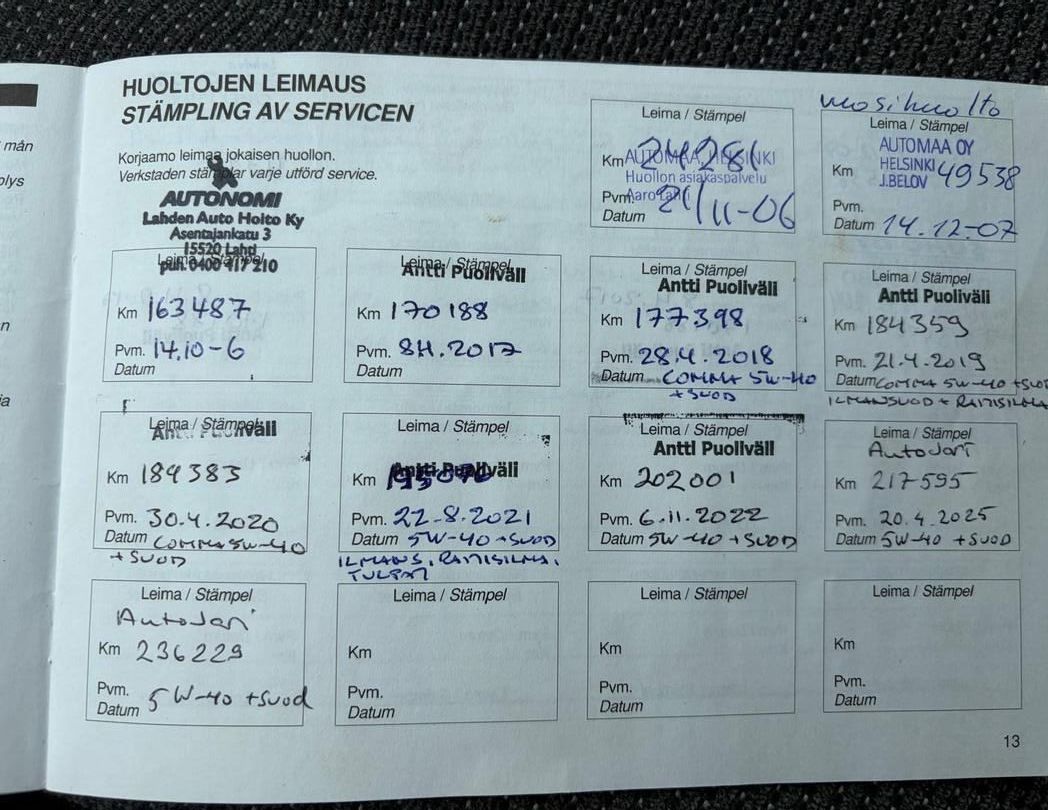 HUOLTOJEN LEIMAUS
STÄMPLING AV SERVICEN
Korjaamo leimaa jokaisen huollon.
Verkstaden stämplar varje utförd service.
AUTONOMI
Lahden Auto Hoito Ky
Asentajankatu 3
15520 Lahti
puh. 0400 417 210
Leima / Stämpel
AUTOMAA, HELSINKI
Huollon asiakaspalvelu
Km 24281
Pvm. 21/11-06
Datum
vuosihuolto
Leima / Stämpel
AUTOMAA OY
HELSINKI
J.BELOV
Km 49538
Pvm.
Datum 14.12-07
Leima / Stämpel
Km 163487
Pvm. 14.10-6
Datum
Leima / Stämpel
Antti Puoliväli
Km 170188
Pvm. 8.4.2017
Datum
Leima / Stämpel
Antti Puoliväli
Km 177398
Pvm. 28.4.2018
Datum COMMA 5W-40
+SUOD
Leima / Stämpel
Antti Puoliväli
Km 184359
Pvm. 21.4.2019
Datum COMMA 5W-40 +SUOD
ILMANSUOD + RAITISILMA
Leima / Stämpel
Antti Puoliväli
Km 189383
Pvm. 30.4.2020
Datum COMMA 5W-40
+SUOD
Leima / Stämpel
Antti Puoliväli
Km
Pvm. 22.8.2021
Datum 5W-40 +SUOD
ILMANS, RAITISILMA,
Leima / Stämpel
Antti Puoliväli
Km 202001
Pvm. 6.11.2022
Datum 5W-40 +SUOD
Leima / Stämpel
AutoJari
Km 217595
Pvm. 20.4.2025
Datum 5W-40 +SUOD
Leima / Stämpel
AutoJari
Km 236229
Pvm.
Datum 5W-40 +suod
Leima / Stämpel
Km
Pvm.
Datum
Leima / Stämpel
Km
Pvm.
Datum
Leima / Stämpel
Km
Pvm.
Datum
13
mån